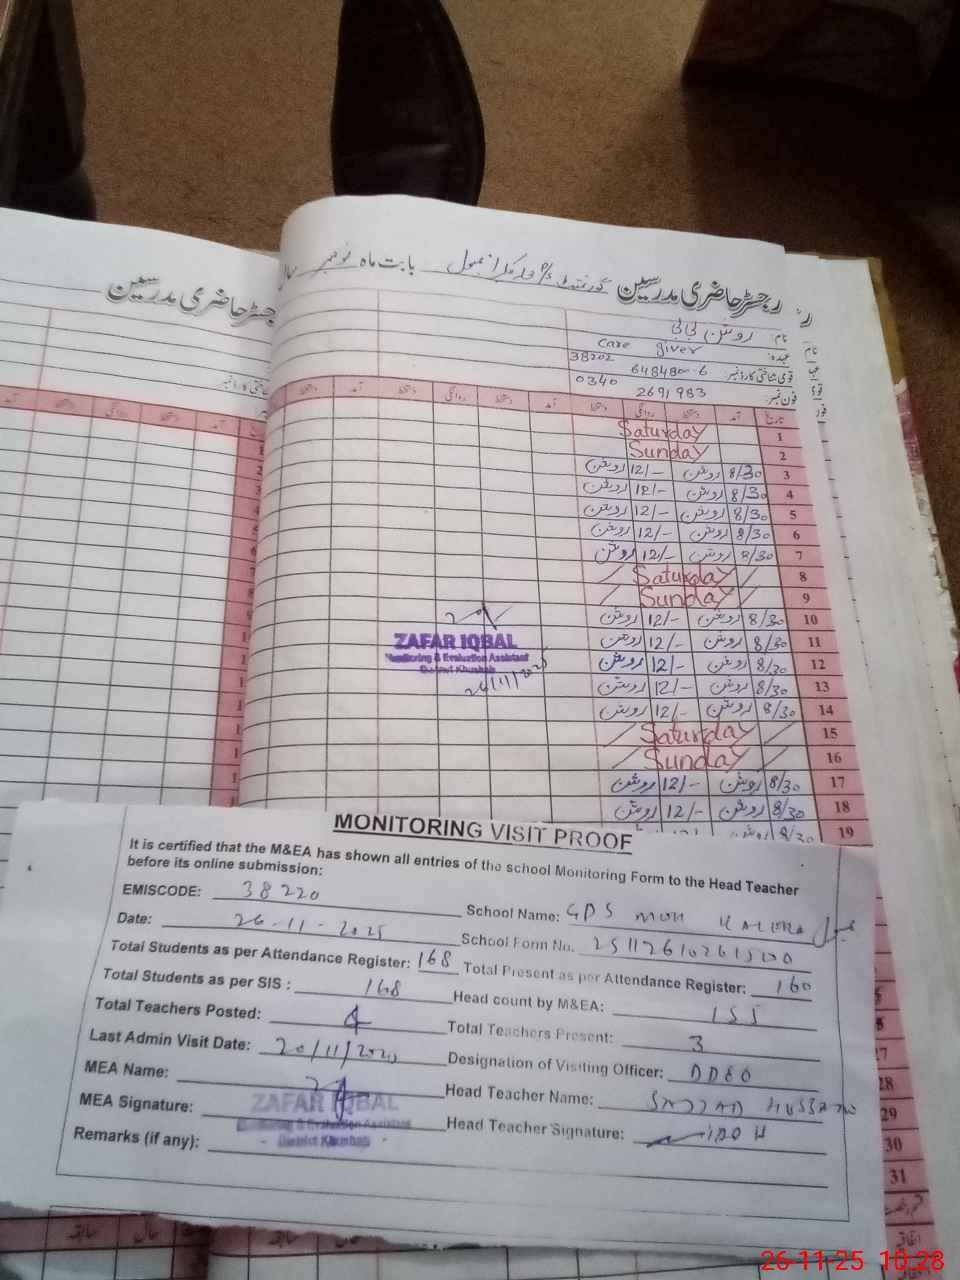 رجسٹر حاضری مدرسین گورنمنٹ بابت ماہ نومبر
جسٹر حاضری مدرسین
نام: روشن بی بی
عہدہ: care giver
قومی شناختی کارڈ نمبر: 38202 648480-6
فون نمبر: 0340 2691983
تاریخ آمد دستخط روانگی دستخط آمد دستخط روانگی دستخط آمد دستخط
1 Saturday
2 Sunday
3 8/30 روشن 12/- روشن
4 8/30 روشن 12/- روشن
5 8/30 روشن 12/- روشن
6 8/30 روشن 12/- روشن
7 8/30 روشن 12/- روشن
8 Saturday
9 Sunday
10 8/30 روشن 12/- روشن
11 8/30 روشن 12/- روشن
12 8/30 روشن 12/- روشن
13 8/30 روشن 12/- روشن
14 8/30 روشن 12/- روشن
15 Saturday
16 Sunday
17 8/30 روشن 12/- روشن
18 8/30 روشن 12/- روشن
19 8/30 روشن
ZAFAR IQBAL
Monitoring & Evaluation Assistant
District Khushab
26/11/2025
MONITORING VISIT PROOF
It is certified that the M&EA has shown all entries of the school Monitoring Form to the Head Teacher
before its online submission:
EMISCODE: 38220 School Name: GPS MOH
Date: 26-11-2025 School Form No.
Total Students as per Attendance Register: 168 Total Present as per Attendance Register: 160
Total Students as per SIS : 168 Head count by M&EA: 155
Total Teachers Posted: 4 Total Teachers Present: 3
Last Admin Visit Date: 20/11/2025 Designation of Visiting Officer: DDEO
MEA Name: Head Teacher Name: SAJJAD HUSSAIN
MEA Signature: Head Teacher Signature:
ZAFAR IQBAL
Monitoring & Evaluation Assistant
- District Khushab -
Remarks (if any):
28
29
30
31
سابقہ حال سابقہ
26-11-25 10:28